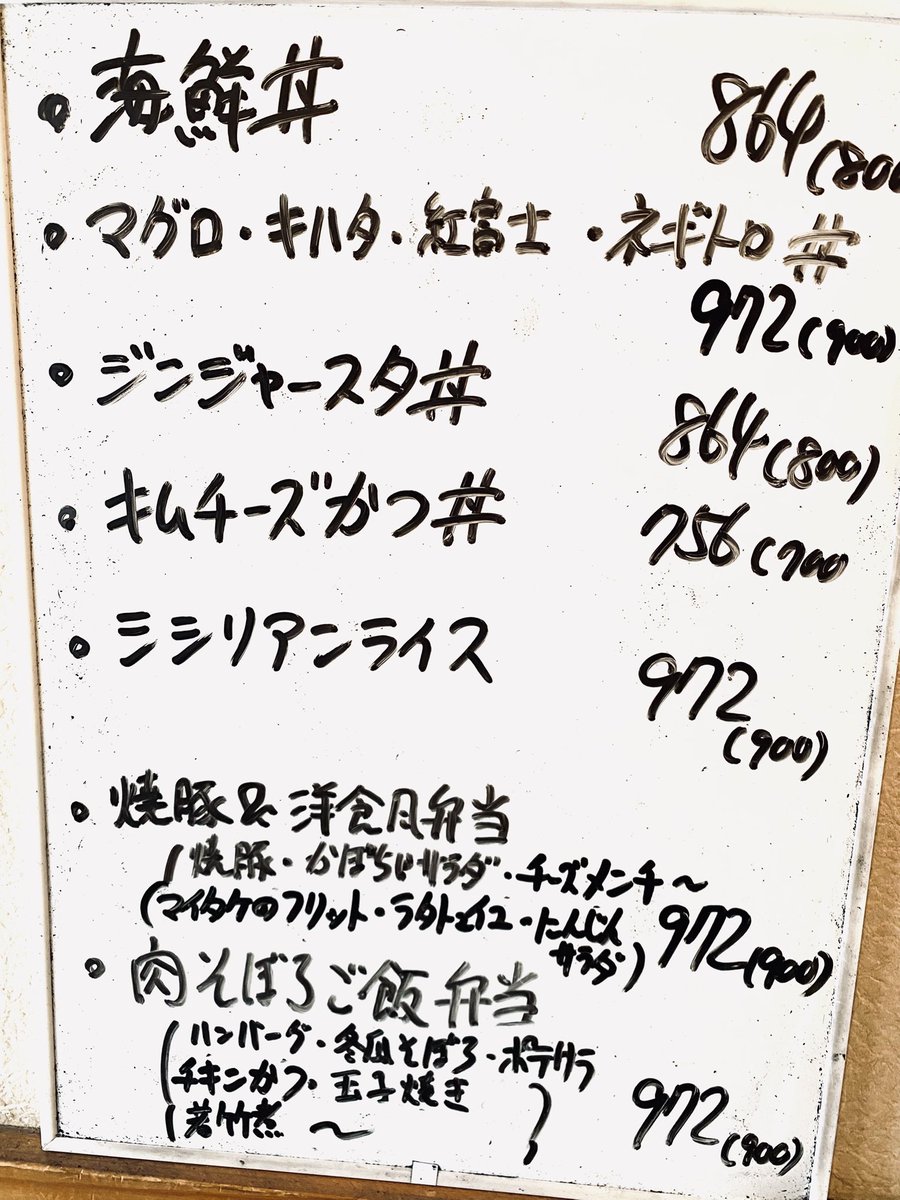 ・海鮮丼 864(800
・マグロ・キハタ・紅富士・ネギトロ丼
972(900)
・ジンジャースタ丼
864(800)
・キムチーズかつ丼 756(700
・シシリアンライス
972
(900)
・焼豚&洋食月弁当
(焼豚・かぼちゃサラダ・チーズメンチ〜
(マイタケのフリット・ラタトゥイユ・にんじん
サラダ) 972(900)
・肉そぼろご飯弁当
(ハンバーグ・冬瓜そぼろ・ポテサラ
チキンかつ・玉子焼き
若竹煮 〜 ) 972
(900)